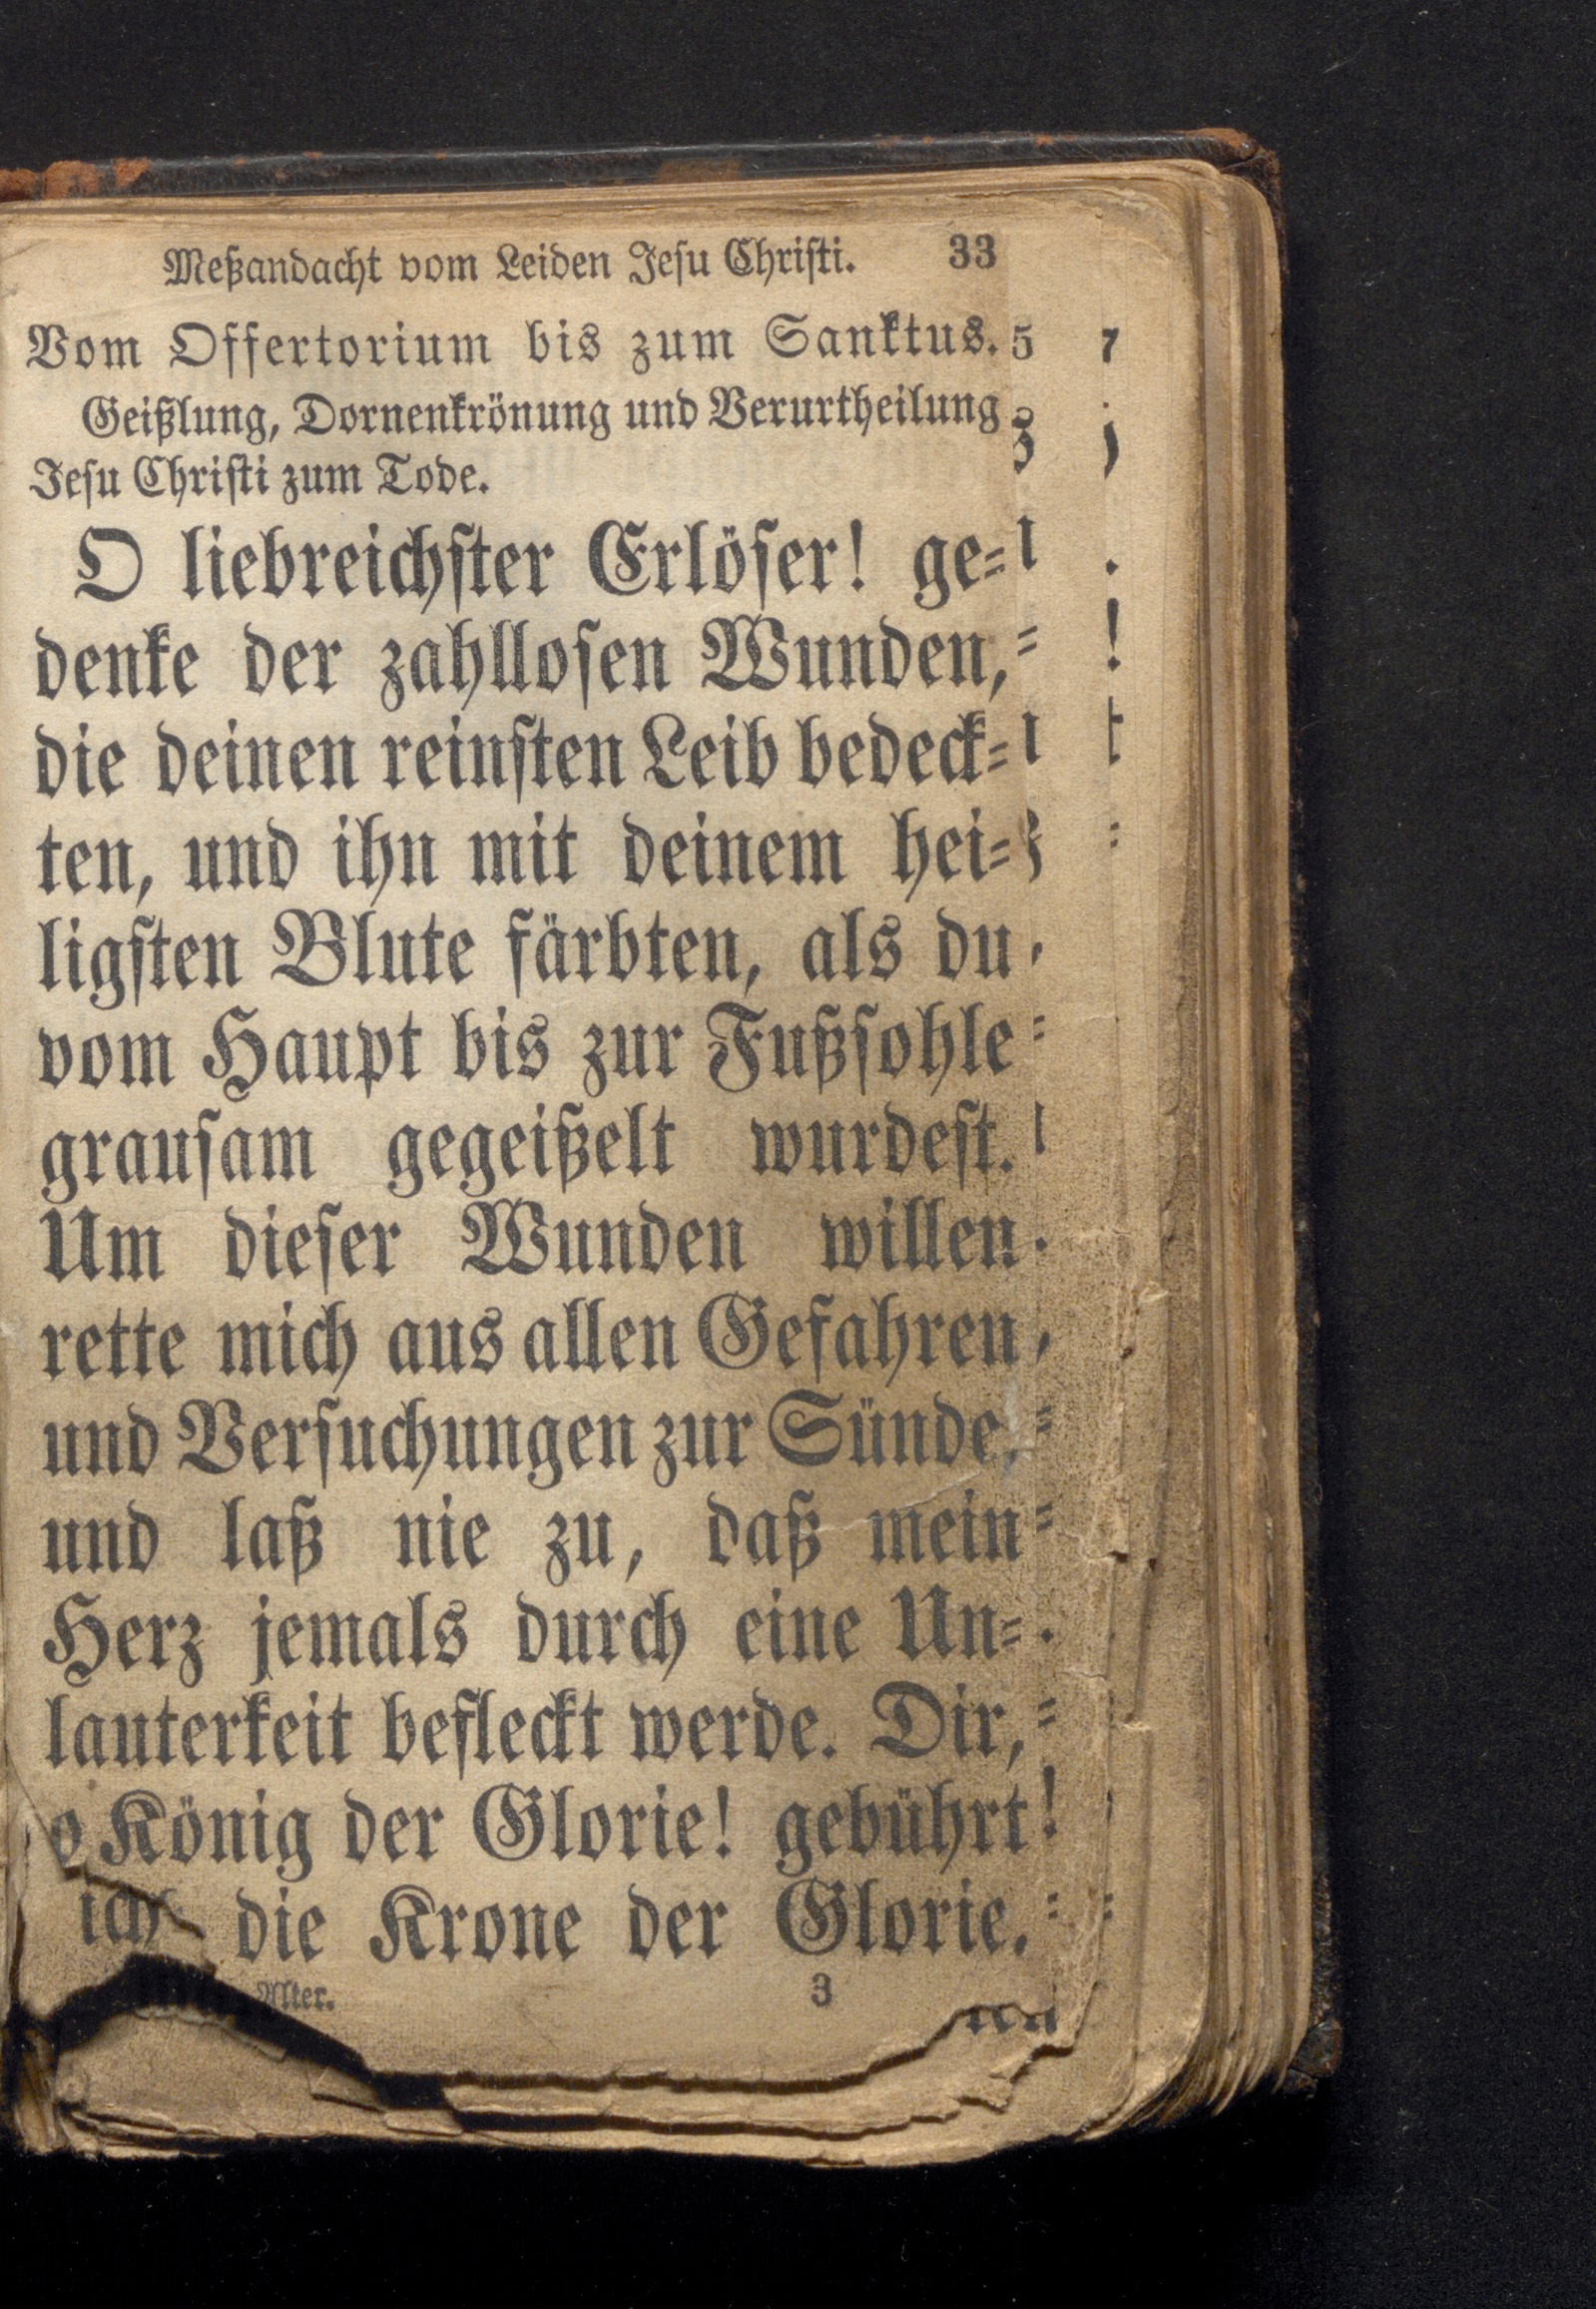 Meßandacht vom Leiden Jesu Christi. 33
Vom Offertorium bis zum Sanktus.
Geißlung, Dornenkrönung und Verurtheilung
Jesu Christi zum Tode.
O liebreichster Erlöser! ge=
denke der zahllosen Wunden,
die deinen reinsten Leib bedeck=
ten, und ihn mit deinem hei=
ligsten Blute färbten, als du
vom Haupt bis zur Fußsohle
grausam gegeißelt wurdest.
Um dieser Wunden willen
rette mich aus allen Gefahren
und Versuchungen zur Sünde,
und laß nie zu, daß mein
Herz jemals durch eine Un=
lauterkeit befleckt werde. Dir,
o König der Glorie! gebührt
die Krone der Glorie.
Alter. 3